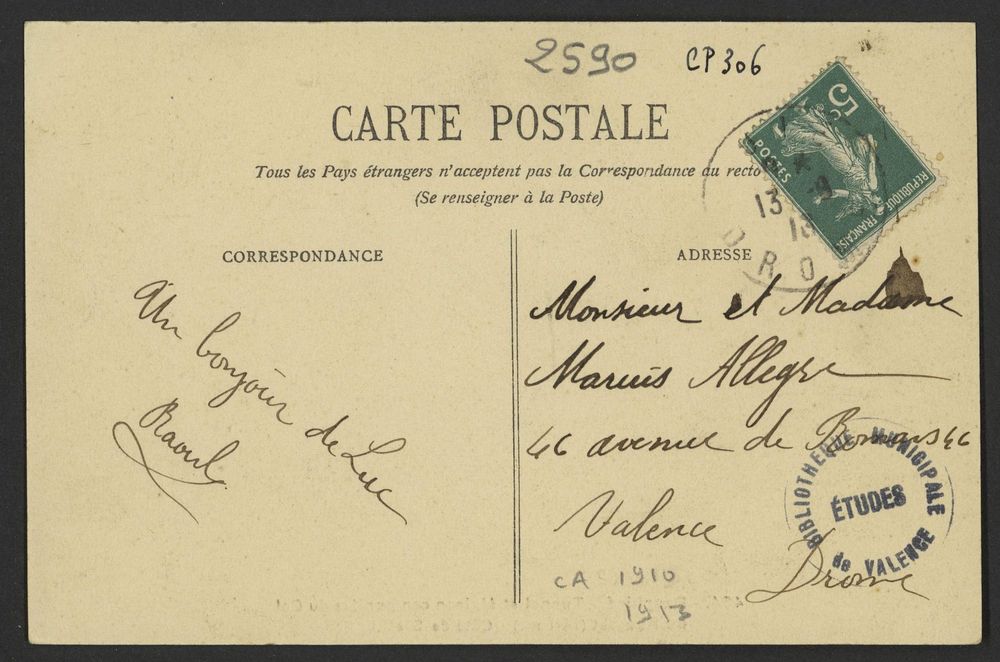 2590
CP306
CARTE POSTALE
Tous les Pays étrangers n'acceptent pas la Correspondance au recto
(Se renseigner à la Poste)
5c
POSTES
REPUBLIQUE FRANÇAISE
13 -9
13
DRO
CORRESPONDANCE
Un bonjour de Luc
Raoul
ADRESSE
Monsieur et Madame
Marius Allegre
46 avenue de Romans 46
Valence
Drome
BIBLIOTHEQUE MUNICIPALE
ÉTUDES
de VALENCE
CA 1910
1913